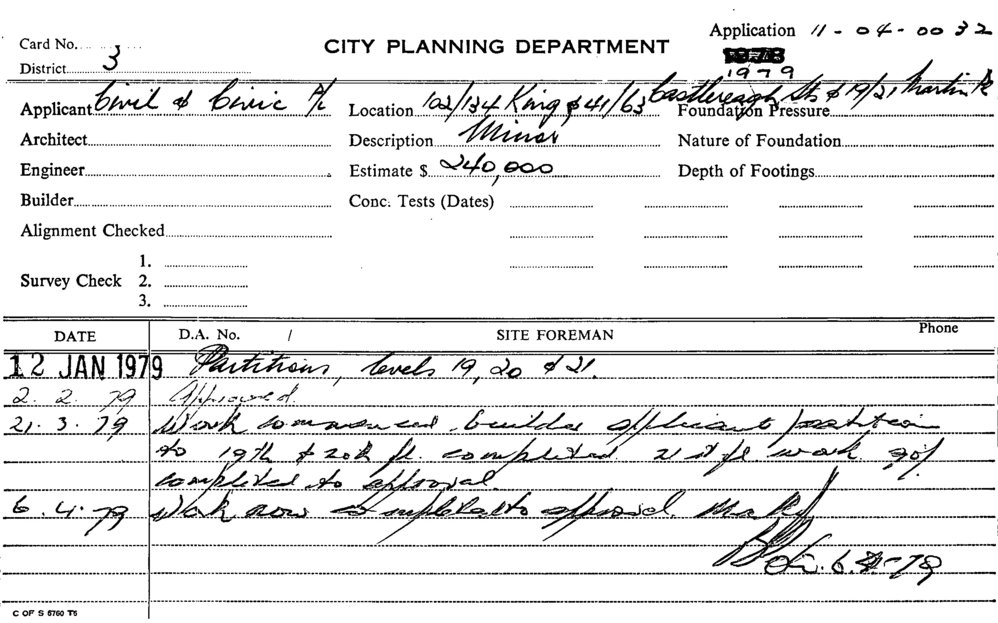 Application 11-04-0032
Card No.
CITY PLANNING DEPARTMENT
1978
District 3
1979
Applicant Civil & Civic P/L Location 102/134 King & 41/63 Castlereagh Sts & 19/21 Martin Pl Foundation Pressure
Architect Description Minor Nature of Foundation
Engineer Estimate $ 240,000 Depth of Footings
Builder Conc. Tests (Dates)
Alignment Checked
1.
Survey Check 2.
3.
DATE D.A. No. / SITE FOREMAN Phone
12 JAN 1979 Partitions, levels 19, 20 & 21.
2.2.79 Approved.
21.3.79 Work commenced builder applicant partition
to 19th & 20th fl. completed 21st fl. work 90%
completed to approval.
6.4.79 Work now completed to approval.
6.4.79
C OF S 5760 T5